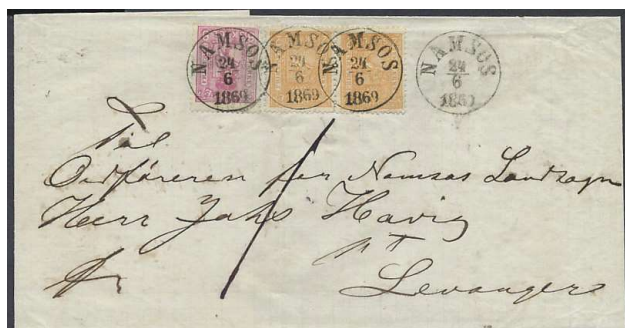 NAMSOS 24 6 1869
NAMSOS 24 6 1869
NAMSOS 24 6 1869
NAMSOS 24 6 1869
Til
Ordføreren for Namsos Landsogn
Herr Johs Havig
pT
Levanger